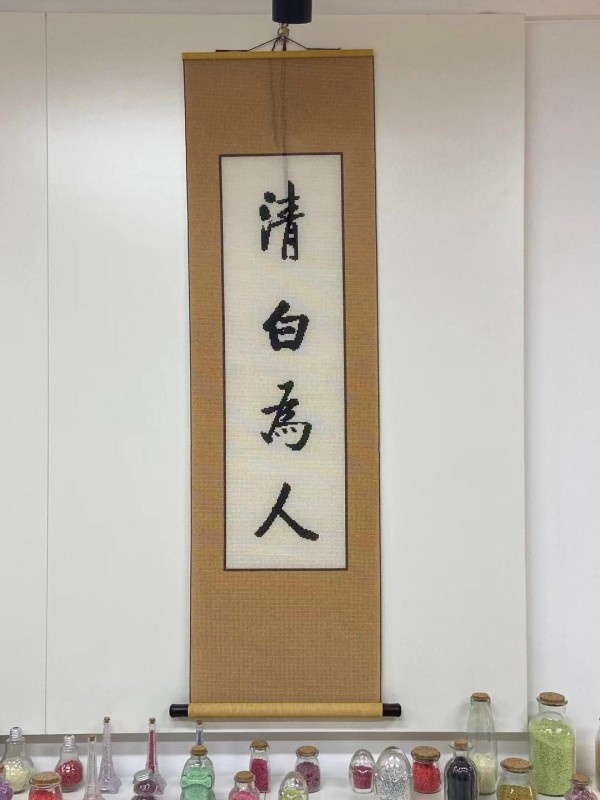 清白為人